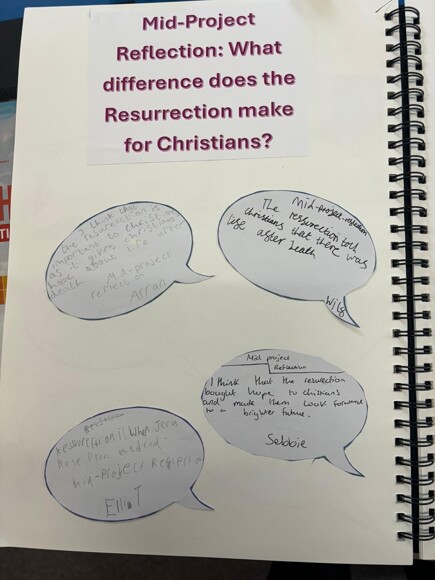 Mid-Project
Reflection: What
difference does the
Resurrection make
for Christians?
I think that
the resurrection is
important to christians
as it gives christians
hope about life after
death
Mid-project
reflection
Arran
Mid-project-reflection
The ressurection told
Christians that there was
life after death
Wilf
Mid project
Reflection
I think that the resurection
bought hope to christians
and made them look forward
to a brighter future.
Sebbie
Ressurection is when Jesus
Rose from
Mid-Project Reflection
ElliOT